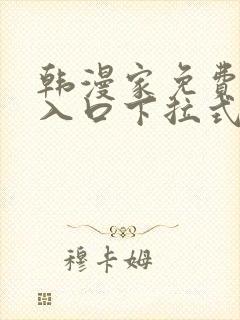 韩漫家免费
入口下拉式
穆卡姆